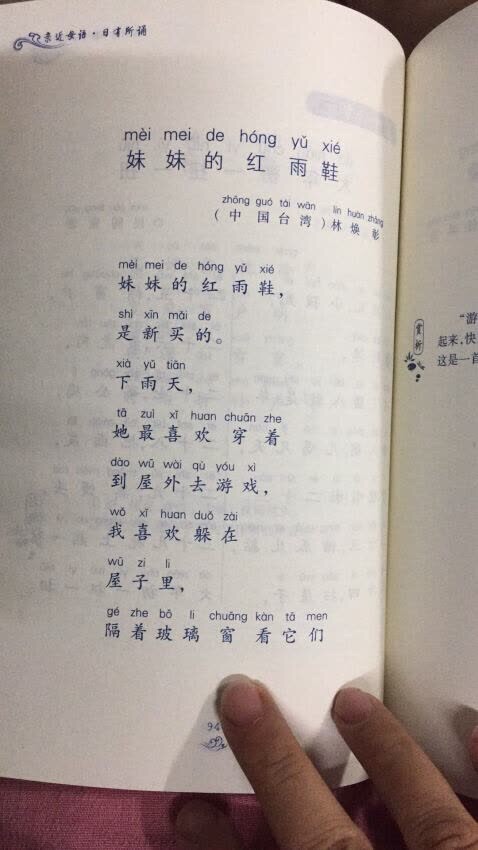 亲近母语·日有所诵
mèi mei de hóng yǔ xié
妹妹的红雨鞋
zhōng guó tái wān lín huàn zhāng
(中国台湾)林焕彰
mèi mei de hóng yǔ xié
妹妹的红雨鞋，
shì xīn mǎi de
是新买的。
xià yǔ tiān
下雨天，
tā zuì xǐ huan chuān zhe
她最喜欢穿着
dào wū wài qù yóu xì
到屋外去游戏，
wǒ xǐ huan duǒ zài
我喜欢躲在
wū zi lǐ
屋子里，
gé zhe bō li chuāng kàn tā men
隔着玻璃窗看它们
94
赏析
“游
起来，快
这是一首